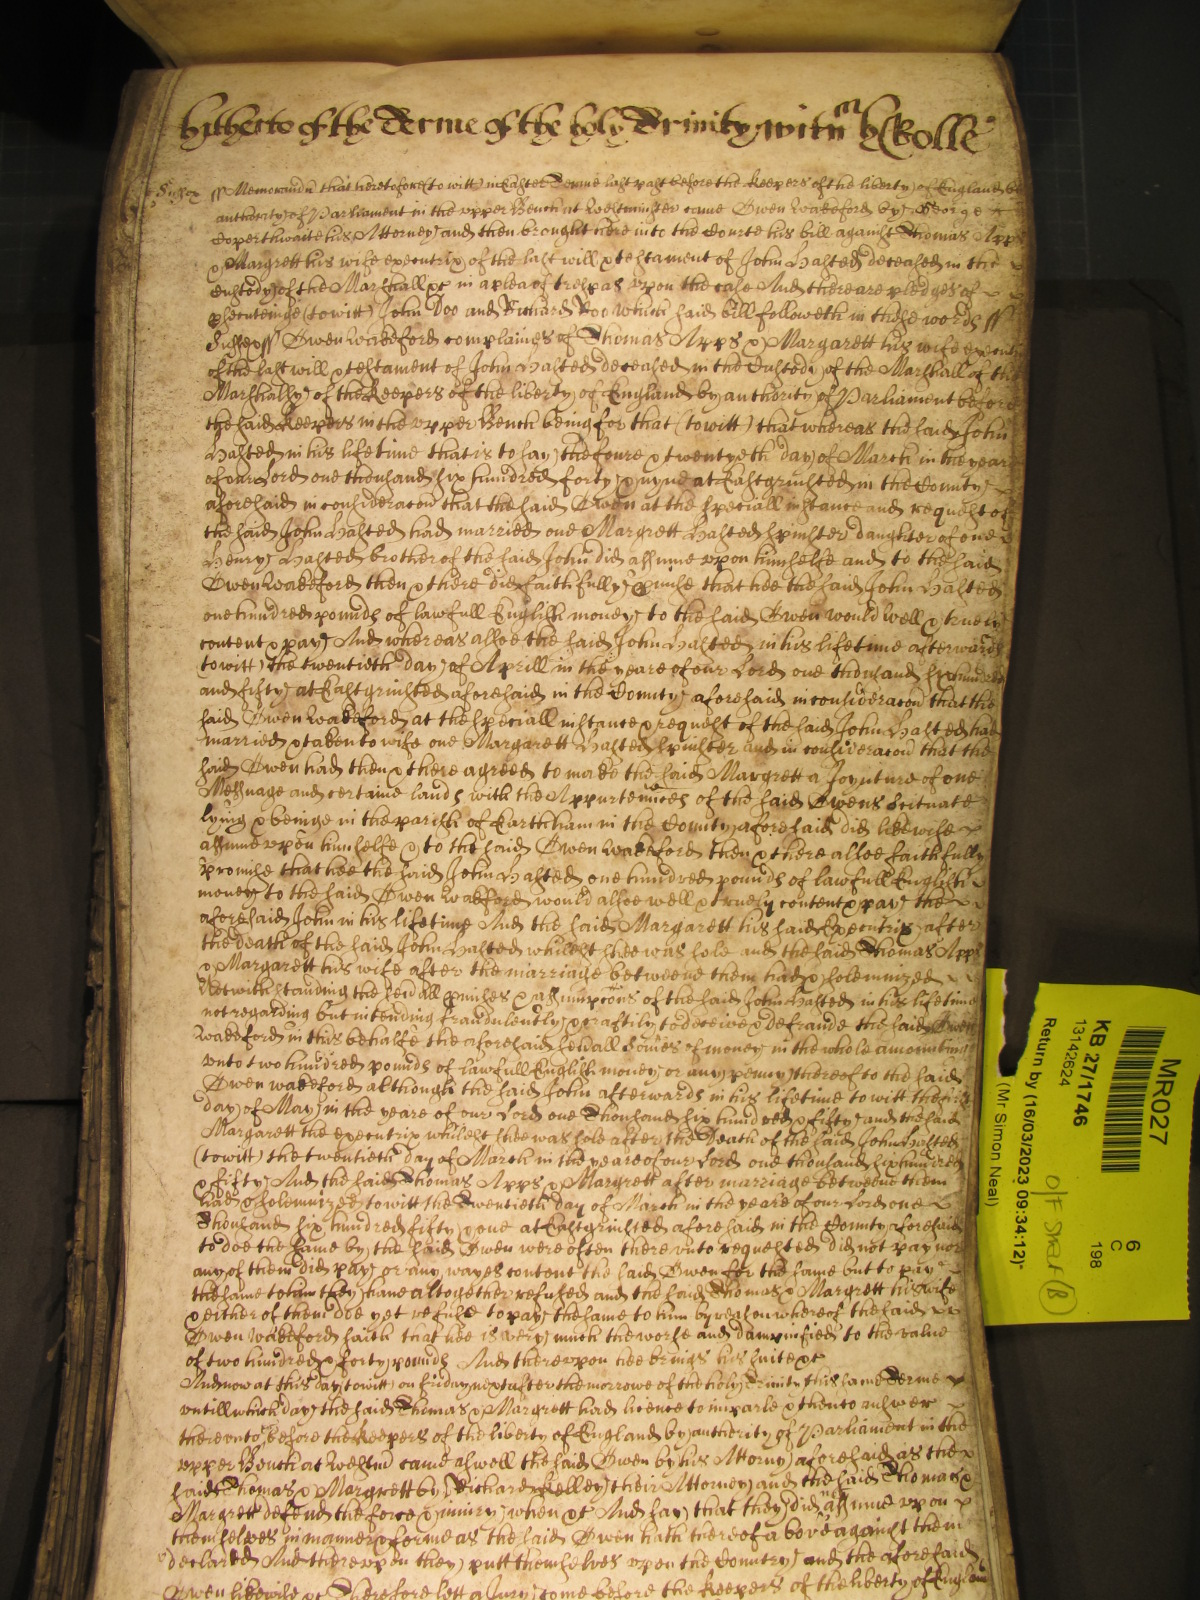 hitherto of the Terme of the holy Trinity witn
Sussex ss Memorand that heretofore to witt in Easter Terme last past before the keepers of the liberty of England by
authority of Parliament in the vpper Bench at Westminster came Owen Wakeford by George
Coperthwaite his Attorney and then brought here into the Courte his bill against Thomas Apps
& Margrett his wife executrix of the last will & testament of John Hasted deceased in the
custody of the Marshall &c in a plea of trespas vpon the case And there are pledges of
psecuteinge (to witt) John Doo and Richard Roo which said bill followeth in these words ss
Sussex ss Owen Wakeford complaines of Thomas Apps & Margarett his wife execut
of the last will & testament of John Hasted deceased in the Custody of the Marshall of the
Marshalsy of the Keepers of the liberty of England by authority of Parliament before
the said Keepers in the vpper Bench being for that (to witt) that whereas the said John
Hasted in his lifetime that is to say the foure & twentyeth day of March in the yeare
of our Lord one thousand six hundred forty & nyne at Eastgrinsted in the County
aforesaid in consideracon that the said Owen at the speciall instance and request of
the said John Hasted had married one Margrett Hasted spinster daughter of one
Henry Hasted brother of the said John did assume vpon himselfe and to the said
Owen Wakeford then & there did faithfully pmise that hee the said John Hasted
one hundred pounds of lawfull English money to the said Owen would well & truely
content & pay And whereas alsoe the said John Hasted in his lifetime afterwards
to witt the twentieth day of Aprill in the yeare of our Lord one thousand six hundred
and fifty at Eastgrinsted aforesaid in the County aforesaid in consideracon that the
said Owen Wakeford at the speciall instance & request of the said John Hasted had
married & taken to wife one Margarett Hasted spinster and in consideracon that the
said Owen had then & there agreed to make the said Margrett a Joynture of one
Messuage and certaine lands with the Appurtennces of the said Owens scituate
lying & beinge in the parish of in the County aforesaid did likewise
assume vpon himselfe & to the said Owen Wakeford then & there alsoe faithfully
promise that hee the said John Hasted one hundred pounds of lawfull English
money to the said Owen Wakeford would alsoe well & truely content & pay the
aforesaid John in his lifetime And the said Margarett his said Executrix after
the death of the said John Hasted whilest shee was sole and the said Thomas Apps
& Margarett his wife after the marriage betweene them had & solemnized
Notwithstanding the seuall pmises & assumpcons of the said John Hasted in his lifetime
not regarding but intending fraudulently & craftily to deceive & defraude the said Owen
Wakeford in this behalfe the aforesaid seuall somes of money in the whole amounting
vnto two hundred pounds of lawfull English money or any penny thereof to the said
Owen Wakeford although the said John afterwards in his lifetime to witt the first
day of May in the yeare of our Lord one Thousand six hundred & fifty and the said
Margarett the executrix whilest shee was sole after the Death of the said John Hasted
(to witt) the twentieth day of March in the yeare of our Lord one thousand six hundred
& fifty And the said Thomas Apps & Margrett after marriage betweene them
had & solemnized to witt the Twentieth day of March in the yeare of our Lord one
Thousand six hundred fifty & one at Eastgrinsted aforesaid in the County aforesaid
to doe the same by the said Owen were often there vnto requested did not pay nor
any of them did pay or any wayes content the said Owen for the same but to pay
the same to him they haue altogether refused and the said Thomas & Margrett his wife
& either of them doe yet refuse to pay the same to him by reason whereof the said
Owen Wakeford saith that hee is very much the worse and dampnified to the value
of two hundred & forty pounds And therevpon hee brings his suite &c
And now at this day to witt on friday next after the morrowe of the holy Trinity this same Terme
vntill which day the said Thomas & Margrett had licence to imparle & then to answer
therevnto before the Keepers of the liberty of England by authority of Parliament in the
vpper Bench at Westmr came aswell the said Owen by his Attorny aforesaid as the
said Thomas & Margrett by Richard Kelley their Attorney and the said Thomas &
Margrett defend the force & iniury when &c And say that they did assume vpon
themselves in manner & forme as the said Owen hath thereof above against them
declared And therevpon they putt themselves vpon the Country and the aforesaid
Owen likewise &c Therefore lett a Jury come before the Keepers of the liberty of England
MR027
KB 27/1746
13142624
Return by (16/03/2023 09:34:12)"
(Mr Simon Neal)
6
C
198
O/F Street (B)